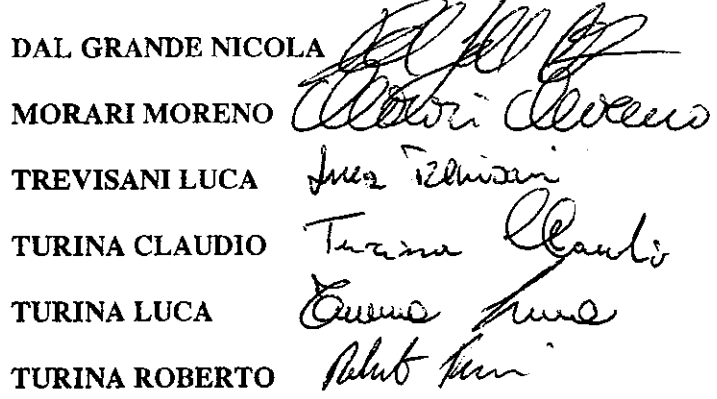 DAL GRANDE NICOLA
MORARI MORENO Morari Moreno
TREVISANI LUCA Luca Trevisani
TURINA CLAUDIO Turina Claudio
TURINA LUCA Turina Luca
TURINA ROBERTO Roberto Turina